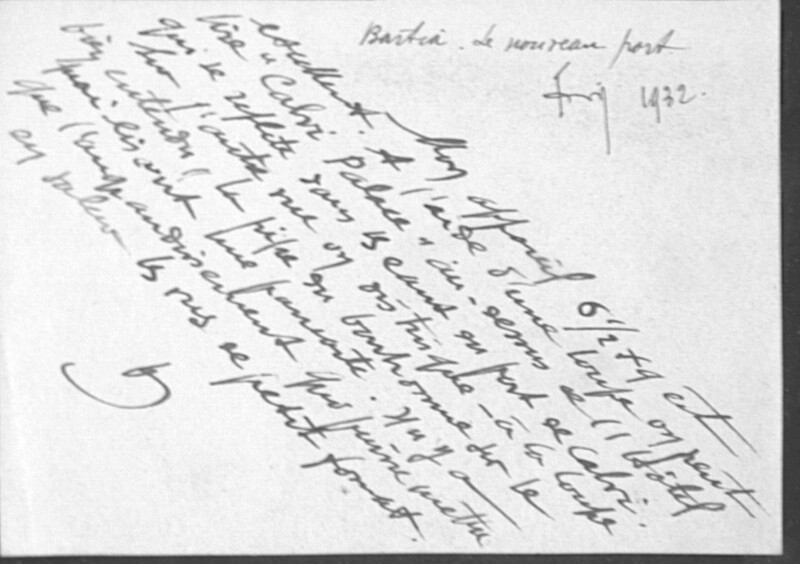 Bastia. Le nouveau port
1932.
Mon appareil 6 1/2 + 9 est
excellent. A l'aide d'une loupe on peut
lire "Calvi Palace" au-dessus de l'hôtel
qui se reflète dans les eaux du port de Calvi.
Sur l'autre vue on distingue - à la loupe
bien entendu, la pipe du bonhomme sur le
quai lisant une pancarte. Il n'y a
que l'agrandissement qui puisse mettre
en valeur les vues de petit format.